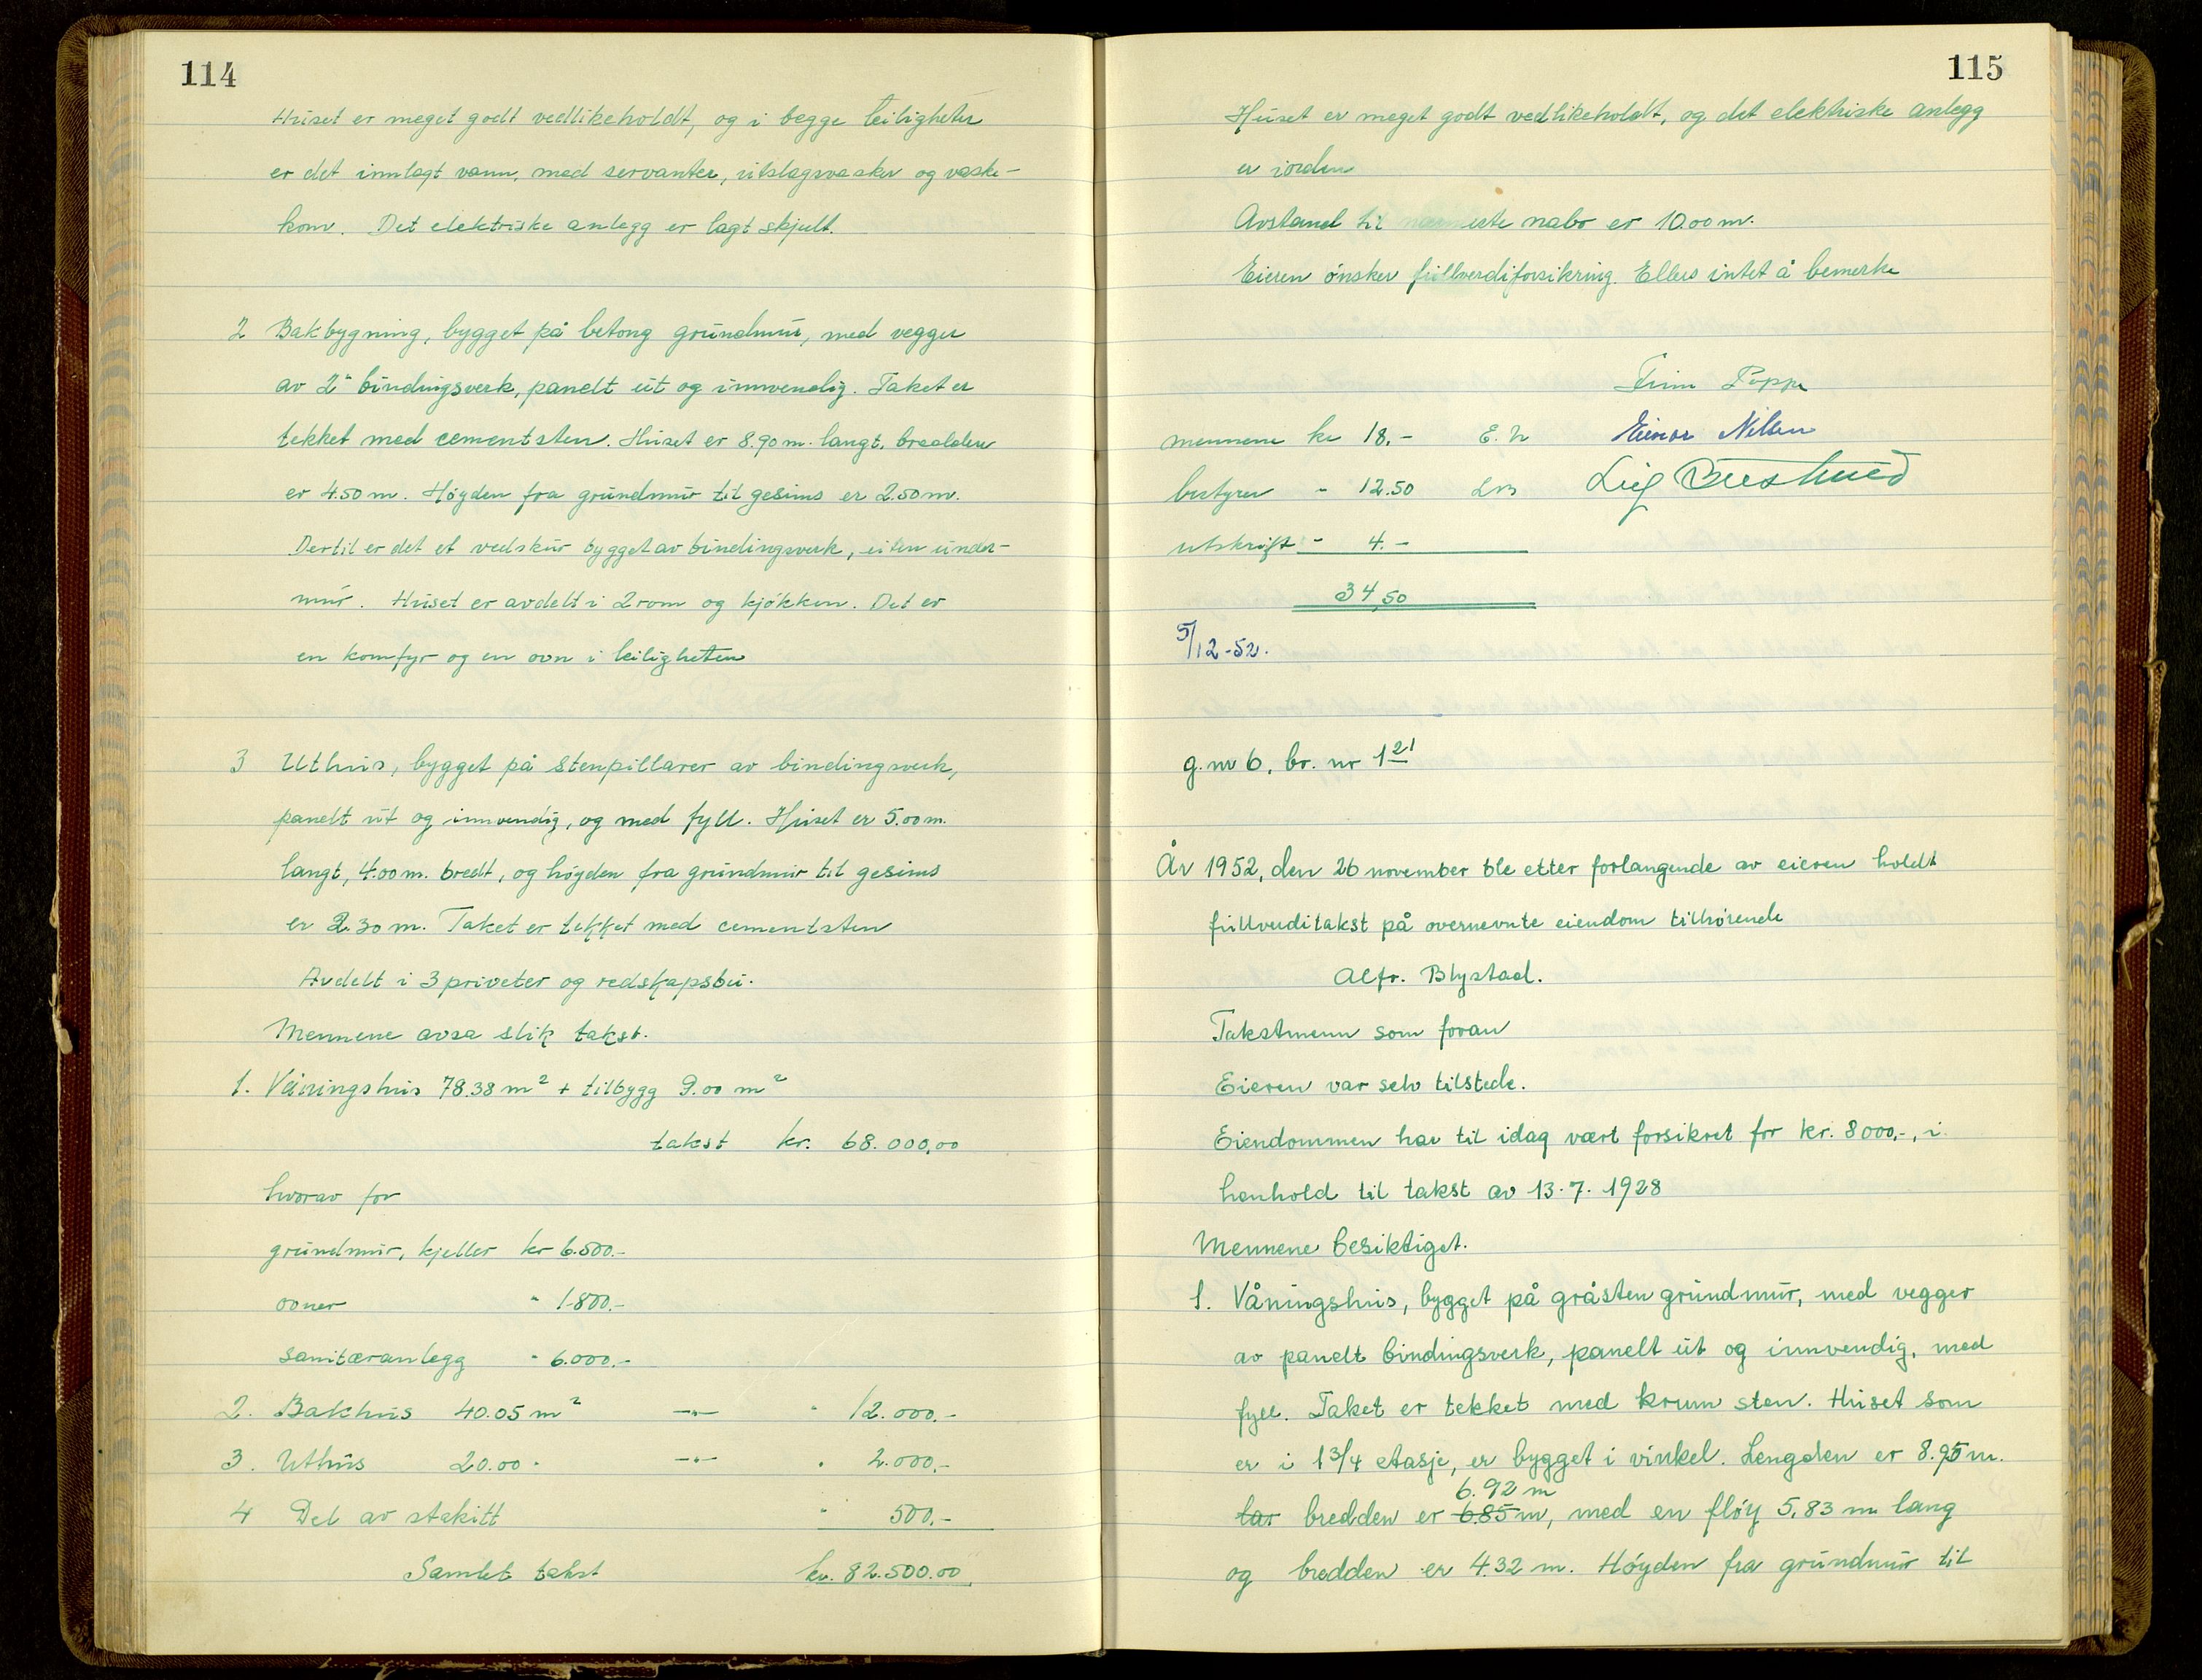 114
Huset er meget godt vedlikeholdt, og i begge leiligheter
er det innlagt vann, med servanter, utslagsvasker og vaske-
kom. Det elektriske anlegg er lagt skjult.
2 Bakbygning, bygget på betong grundmur, med vegger
av 2" bindingsverk, panelt ut og innvendig. Taket er
tekket med cementsten. Huset er 8.90 m. langt, bredden
er 4.50 m. Høyden fra grundmur til gesims er 2.50 m.
Dertil er det et vedskur bygget av bindingsverk, uten under-
mur. Huset er avdelt i 2 rom og kjøkken. Det er
en komfyr og en ovn i leiligheten
3 Uthus, bygget på stenpillarer av bindingsverk,
panelt ut og innvendig, og med fyll. Huset er 5.00 m.
langt, 4.00 m. bredt, og høyden fra grundmur til gesims
er 2.30 m. Taket er tekket med cementsten
Avdelt i 3 priveter og redskapsbu.
Mennene avsa slik takst.
1. Våningshus 78.38 m² + tilbygg 9.00 m²
takst kr. 68.000,00
hvorav for
grundmur, kjeller kr 6.500.-
ovner " 1.800.-
sanitæranlegg " 6.000.-
2. Bakhus 40.05 m² —"— " 12.000.-
3. Uthus 20.00 " —"— " 2.000.-
4 Del av stakitt " 500.-
Samlet takst kr. 82.500.00
115
Huset er meget godt vedlikeholdt, og det elektriske anlegg
er iorden
Avstand til nærmeste nabo er 10.00 m.
Eieren ønsker fullverdiforsikring. Ellers intet å bemerke
Poppe
mennene kr 18.- E. N Einar Nilsen
bestyrer " 12.50 Leif
utskrift - 4.-
34,50
5/12-52.
g. nr 6, br. nr 1²¹
År 1952, den 26 november ble etter forlangende av eieren holdt
fullverditakst på overnevnte eiendom tilhørende
Alfr. Blystad.
Takstmenn som foran
Eieren var selv tilstede.
Eiendommen har til idag vært forsikret for kr. 8000,-, i
henhold til takst av 13.7.1928
Mennene besiktiget.
1. Våningshus, bygget på gråsten grundmur, med vegger
av panelt bindingsverk, panelt ut og innvendig, med
fyll. Taket er tekket med krum sten. Huset som
er i 1 3/4 etasje, er bygget i vinkel. Lengden er 8.95 m.
6.92 m
lar bredden er 6.85 m, med en fløy 5,83 m lang
og bredden er 4.32 m. Høyden fra grundmur til